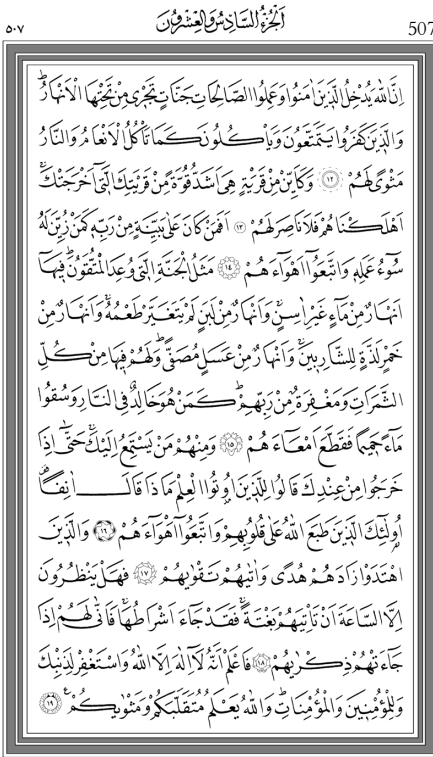 ٥٠٧ اَلْجُزْءُ السَّادِسُ وَالْعِشْرُونَ 507
اِنَّ اللّٰهَ يُدْخِلُ الَّذِينَ اٰمَنُوا وَعَمِلُوا الصَّالِحَاتِ جَنَّاتٍ تَجْرِى مِنْ تَحْتِهَا الْاَنْهَارُۜ
وَالَّذِينَ كَفَرُوا يَتَمَتَّعُونَ وَيَأْكُلُونَ كَمَا تَأْكُلُ الْاَنْعَامُ وَالنَّارُ
مَثْوًى لَهُمْ ﴿١٢﴾ وَكَاَيِّنْ مِنْ قَرْيَةٍ هِىَ اَشَدُّ قُوَّةً مِنْ قَرْيَتِكَ الَّتِٓى اَخْرَجَتْكَۚ
اَهْلَكْنَاهُمْ فَلَا نَاصِرَ لَهُمْ ﴿١٣﴾ اَفَمَنْ كَانَ عَلٰى بَيِّنَةٍ مِنْ رَبِّهِ كَمَنْ زُيِّنَ لَهُ
سُوٓءُ عَمَلِهِ وَاتَّبَعُٓوا اَهْوَٓاءَهُمْ ﴿١٤﴾ مَثَلُ الْجَنَّةِ الَّتِى وُعِدَ الْمُتَّقُونَۜ فِيهَٓا
اَنْهَارٌ مِنْ مَٓاءٍ غَيْرِ اٰسِنٍۚ وَاَنْهَارٌ مِنْ لَبَنٍ لَمْ يَتَغَيَّرْ طَعْمُهُۚ وَاَنْهَارٌ مِنْ
خَمْرٍ لَذَّةٍ لِلشَّارِبِينَۚ وَاَنْهَارٌ مِنْ عَسَلٍ مُصَفًّىۜ وَلَهُمْ فِيهَا مِنْ كُلِّ
الثَّمَرَاتِ وَمَغْفِرَةٌ مِنْ رَبِّهِمْۜ كَمَنْ هُوَ خَالِدٌ فِى النَّارِ وَسُقُوا
مَٓاءً حَمِيمًا فَقَطَّعَ اَمْعَٓاءَهُمْ ﴿١٥﴾ وَمِنْهُمْ مَنْ يَسْتَمِعُ اِلَيْكَۚ حَتّٰٓى اِذَا
خَرَجُوا مِنْ عِنْدِكَ قَالُوا لِلَّذِينَ اُوتُوا الْعِلْمَ مَاذَا قَالَ اٰنِفًا۠
اُو۬لٰٓئِكَ الَّذِينَ طَبَعَ اللّٰهُ عَلٰى قُلُوبِهِمْ وَاتَّبَعُٓوا اَهْوَٓاءَهُمْ ﴿١٦﴾ وَالَّذِينَ
اهْتَدَوْا زَادَهُمْ هُدًى وَاٰتٰيهُمْ تَقْوٰيهُمْ ﴿١٧﴾ فَهَلْ يَنْظُرُونَ
اِلَّا السَّاعَةَ اَنْ تَأْتِيَهُمْ بَغْتَةًۚ فَقَدْ جَٓاءَ اَشْرَاطُهَاۚ فَاَنّٰى لَهُمْ اِذَا
جَٓاءَتْهُمْ ذِكْرٰيهُمْ ﴿١٨﴾ فَاعْلَمْ اَنَّهُ لَٓا اِلٰهَ اِلَّا اللّٰهُ وَاسْتَغْفِرْ لِذَنْبِكَ
وَلِلْمُؤْمِنِينَ وَالْمُؤْمِنَاتِۜ وَاللّٰهُ يَعْلَمُ مُتَقَلَّبَكُمْ وَمَثْوٰيكُمْ ﴿١٩﴾